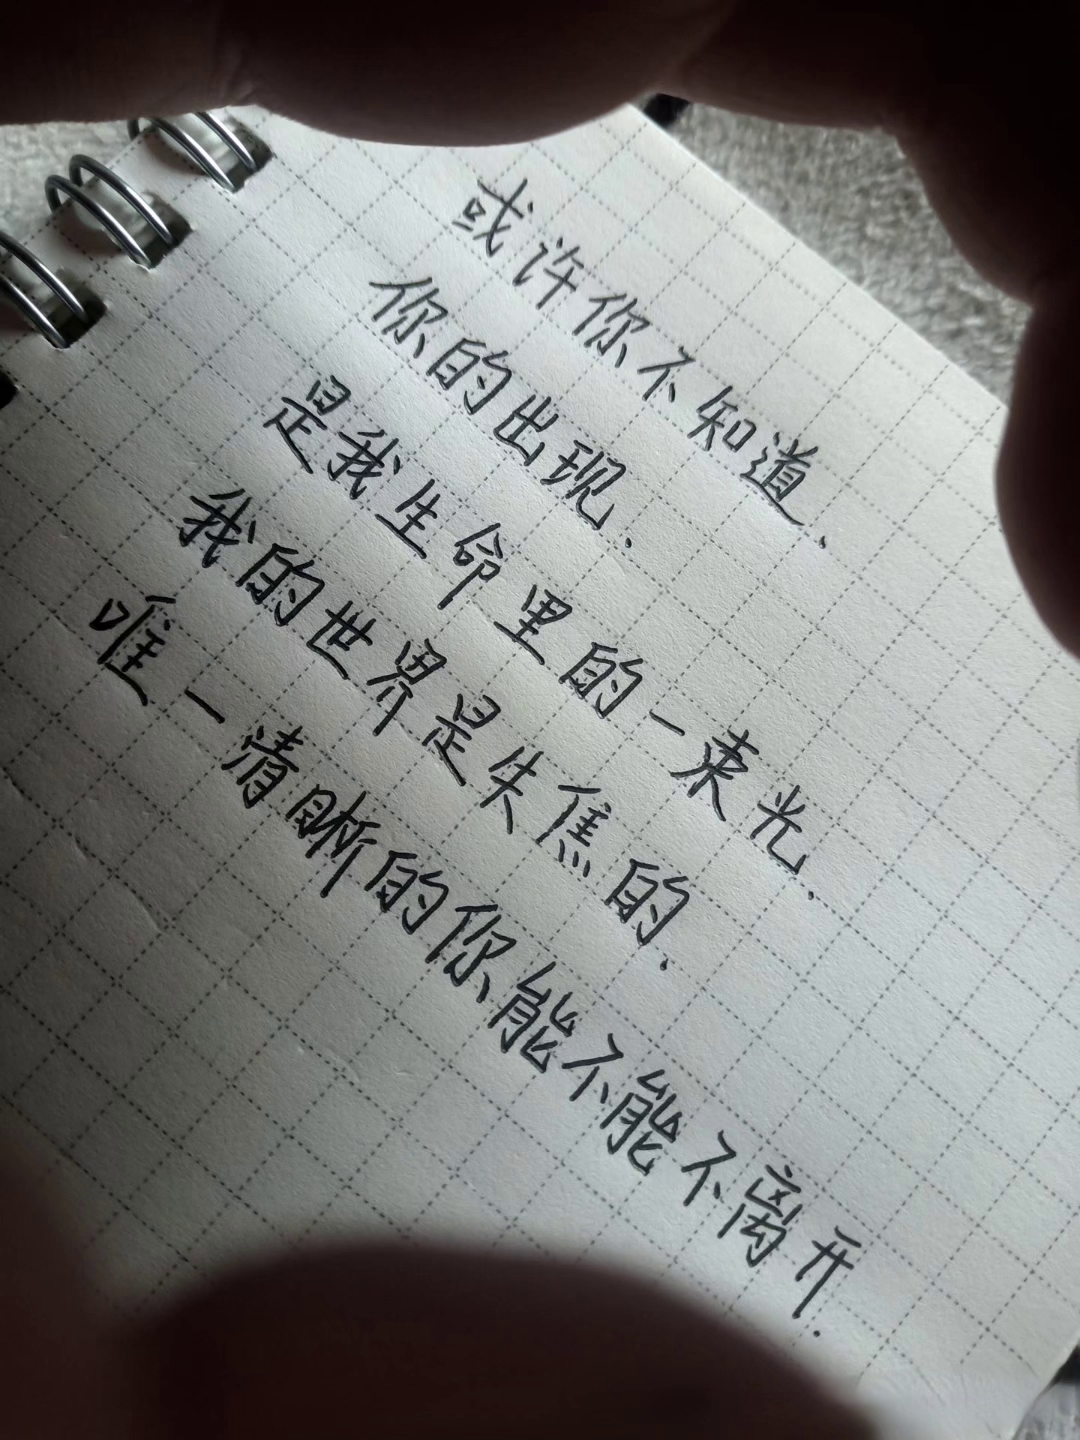 或许你不知道.
你的出现.
是我生命里的一束光.
我的世界是失焦的.
唯一清晰的你能不能不离开.